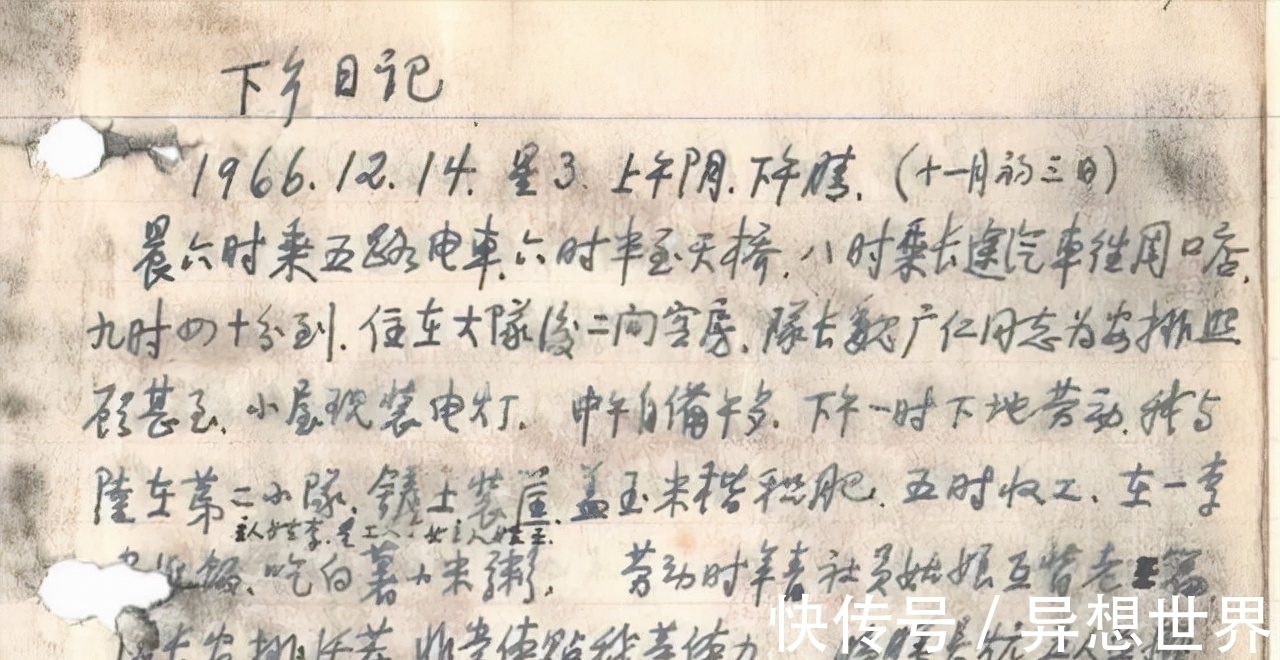 下乡日记
1966.12.14. 星3. 上午阴.下午晴. (十一月初三日)
晨六时乘五路电车.六时半至天桥.八时乘长途汽车往周口店.
九时四十分到.住在大隊後二间客房.隊长魏广仁同志为安排照
顾甚至.小屋现装电灯.中午自備午歺.下午一时下地劳动.我与
陸在第二小隊.鏟土装筐.盖玉米楷积肥.五时收工.在一李
主人姓李.是工人.女主人姓王.
飯.吃白薯小米粥. 劳动时年青社員姑娘互皆老
安排 非常体贴我等体力
快传号 / 异想世界